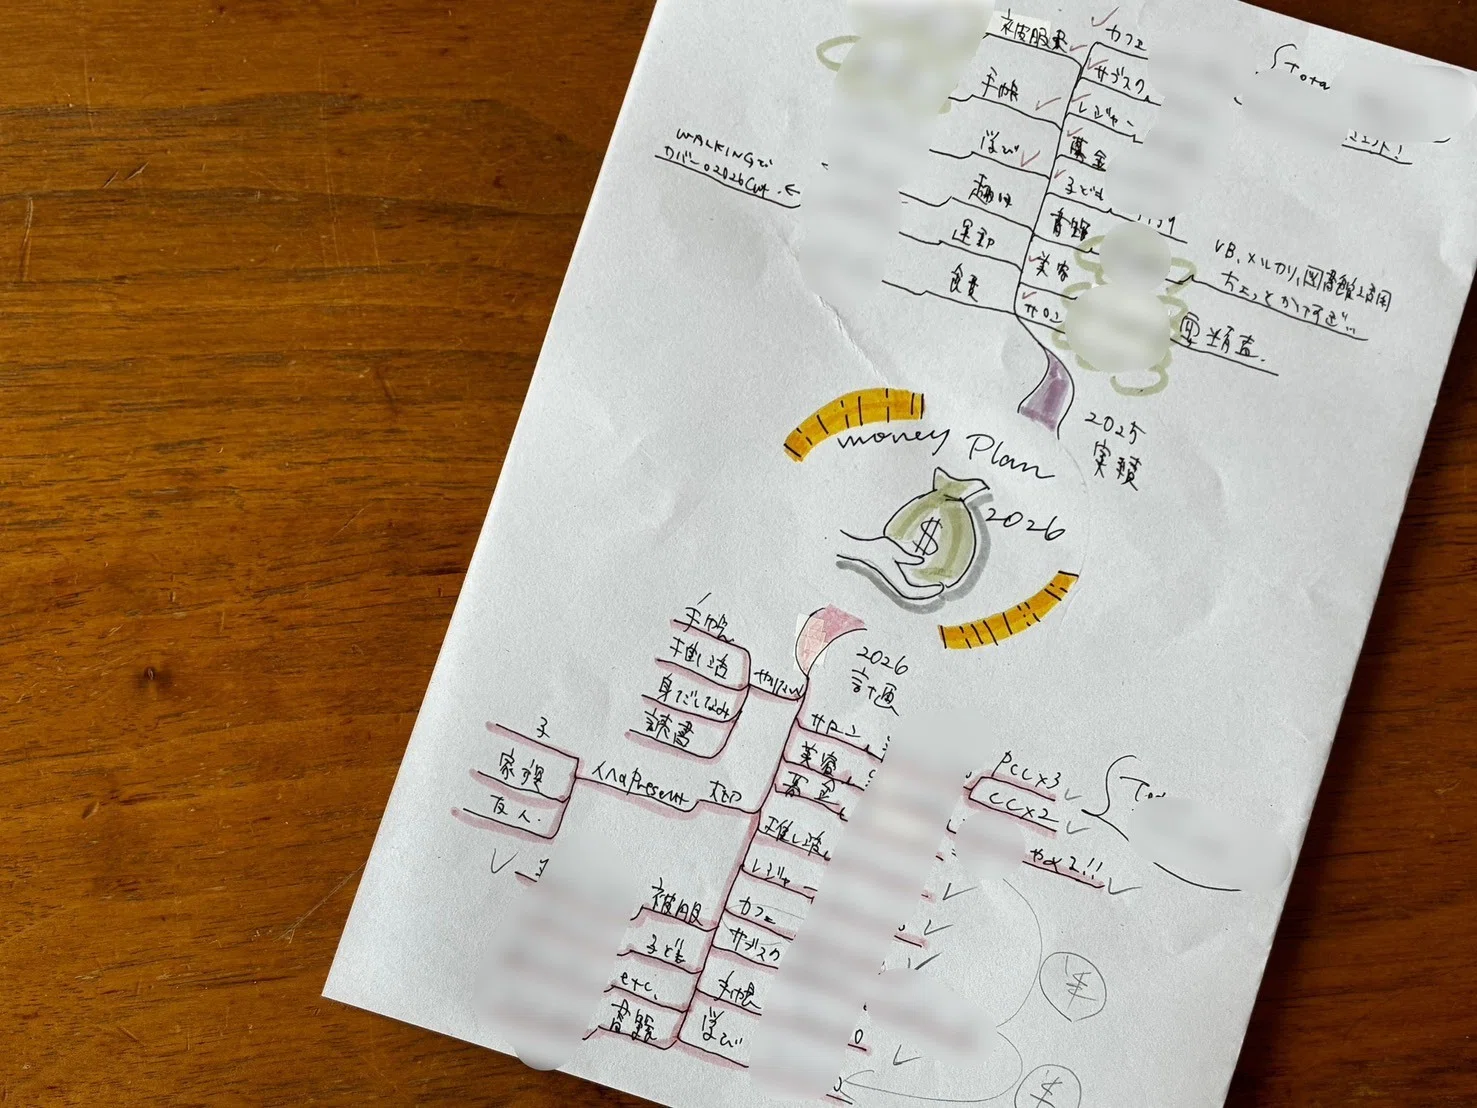 被服
カフェ
サブスク
手帳
レジャー
学び
募金
子ども
趣味
書籍
運動
美容
食費
サロン
Total
WALKINGで
カバー。2026Cut. ←
VB、メルカリ、図書館活用
ちょっとかけすぎ…
要精査.
2025
実績
money Plan
2026
$
2026
計画
手帳
推し活
身だしなみ
読書
子
家族
友人.
人へのPresent
サロン
美容
募金
推し活
レジャー
カフェ
サブスク
手帳
学び
被服
子ども
etc.
書籍
PCC×3
CC×2
やめる!!
¥
¥